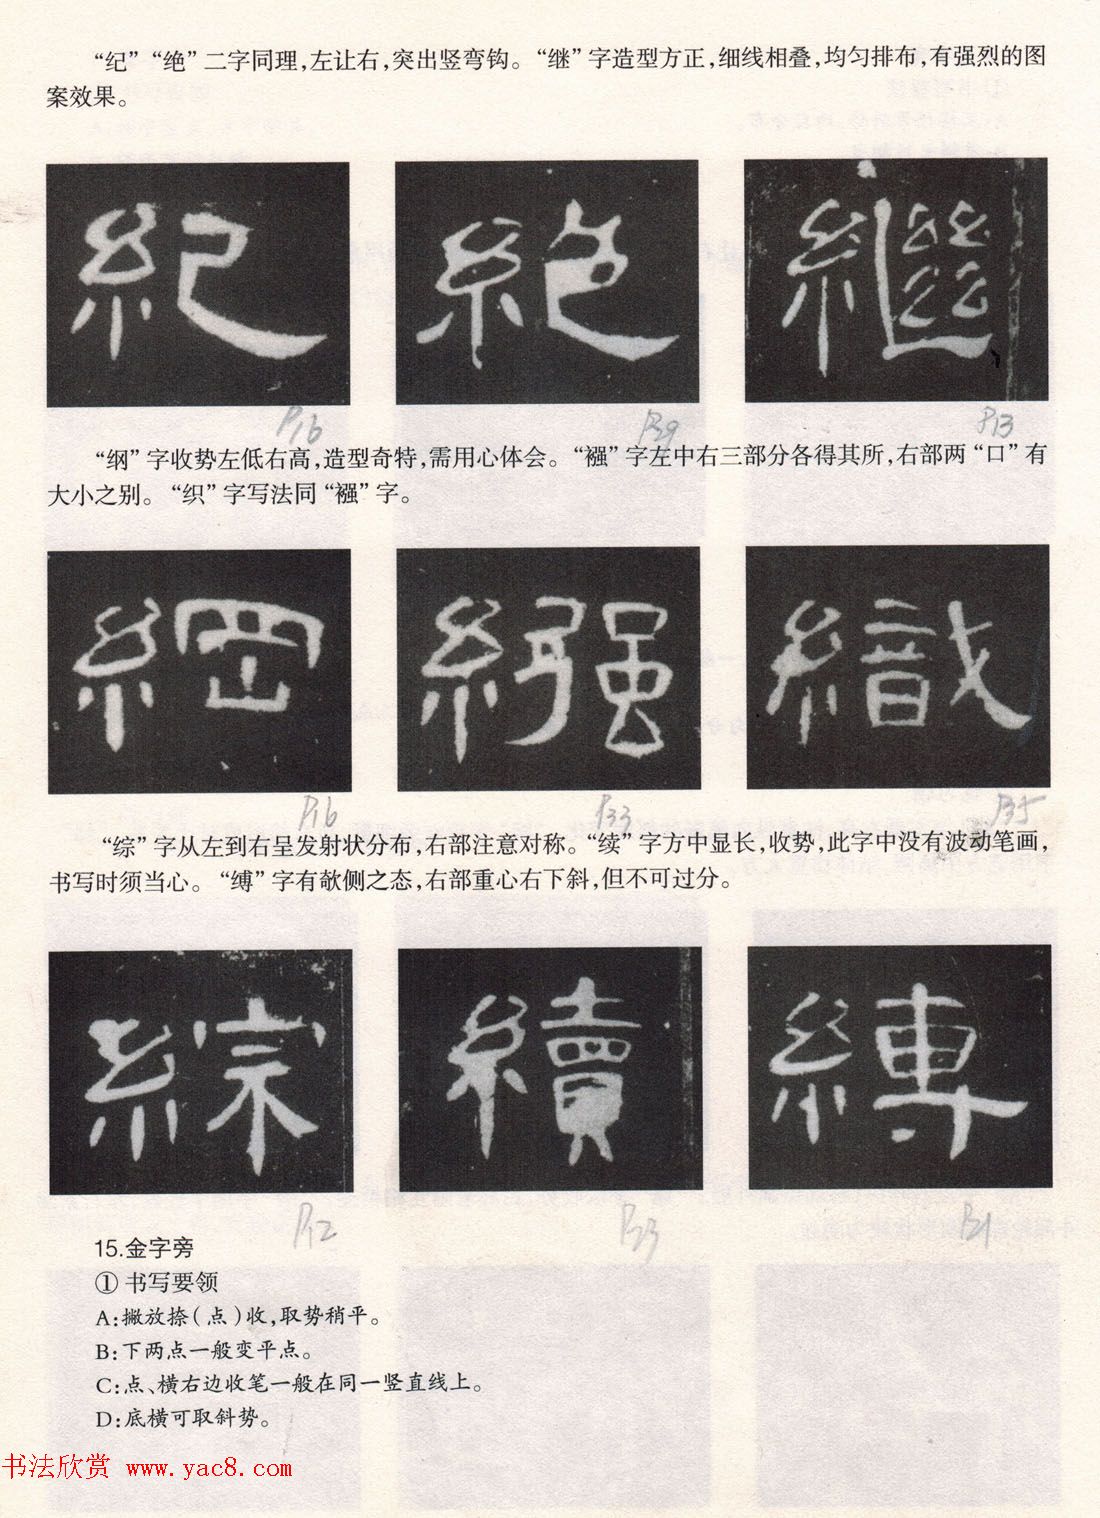 “纪”“绝”二字同理,左让右,突出竖弯钩。“继”字造型方正,细线相叠,均匀排布,有强烈的图
案效果。
紀 絶 繼
P16 P39 P13
“纲”字收势左低右高,造型奇特,需用心体会。“襁”字左中右三部分各得其所,右部两“口”有
大小之别。“织”字写法同“襁”字。
綱 繈 織
P16 P33 P35
“综”字从左到右呈发射状分布,右部注意对称。“续”字方中显长,收势,此字中没有波动笔画,
书写时须当心。“缚”字有欹侧之态,右部重心右下斜,但不可过分。
綜 續 縛
P12 P33 P21
15.金字旁
①书写要领
A:撇放捺(点)收,取势稍平。
B:下两点一般变平点。
C:点、横右边收笔一般在同一竖直线上。
D:底横可取斜势。
书法欣赏 www.yac8.com